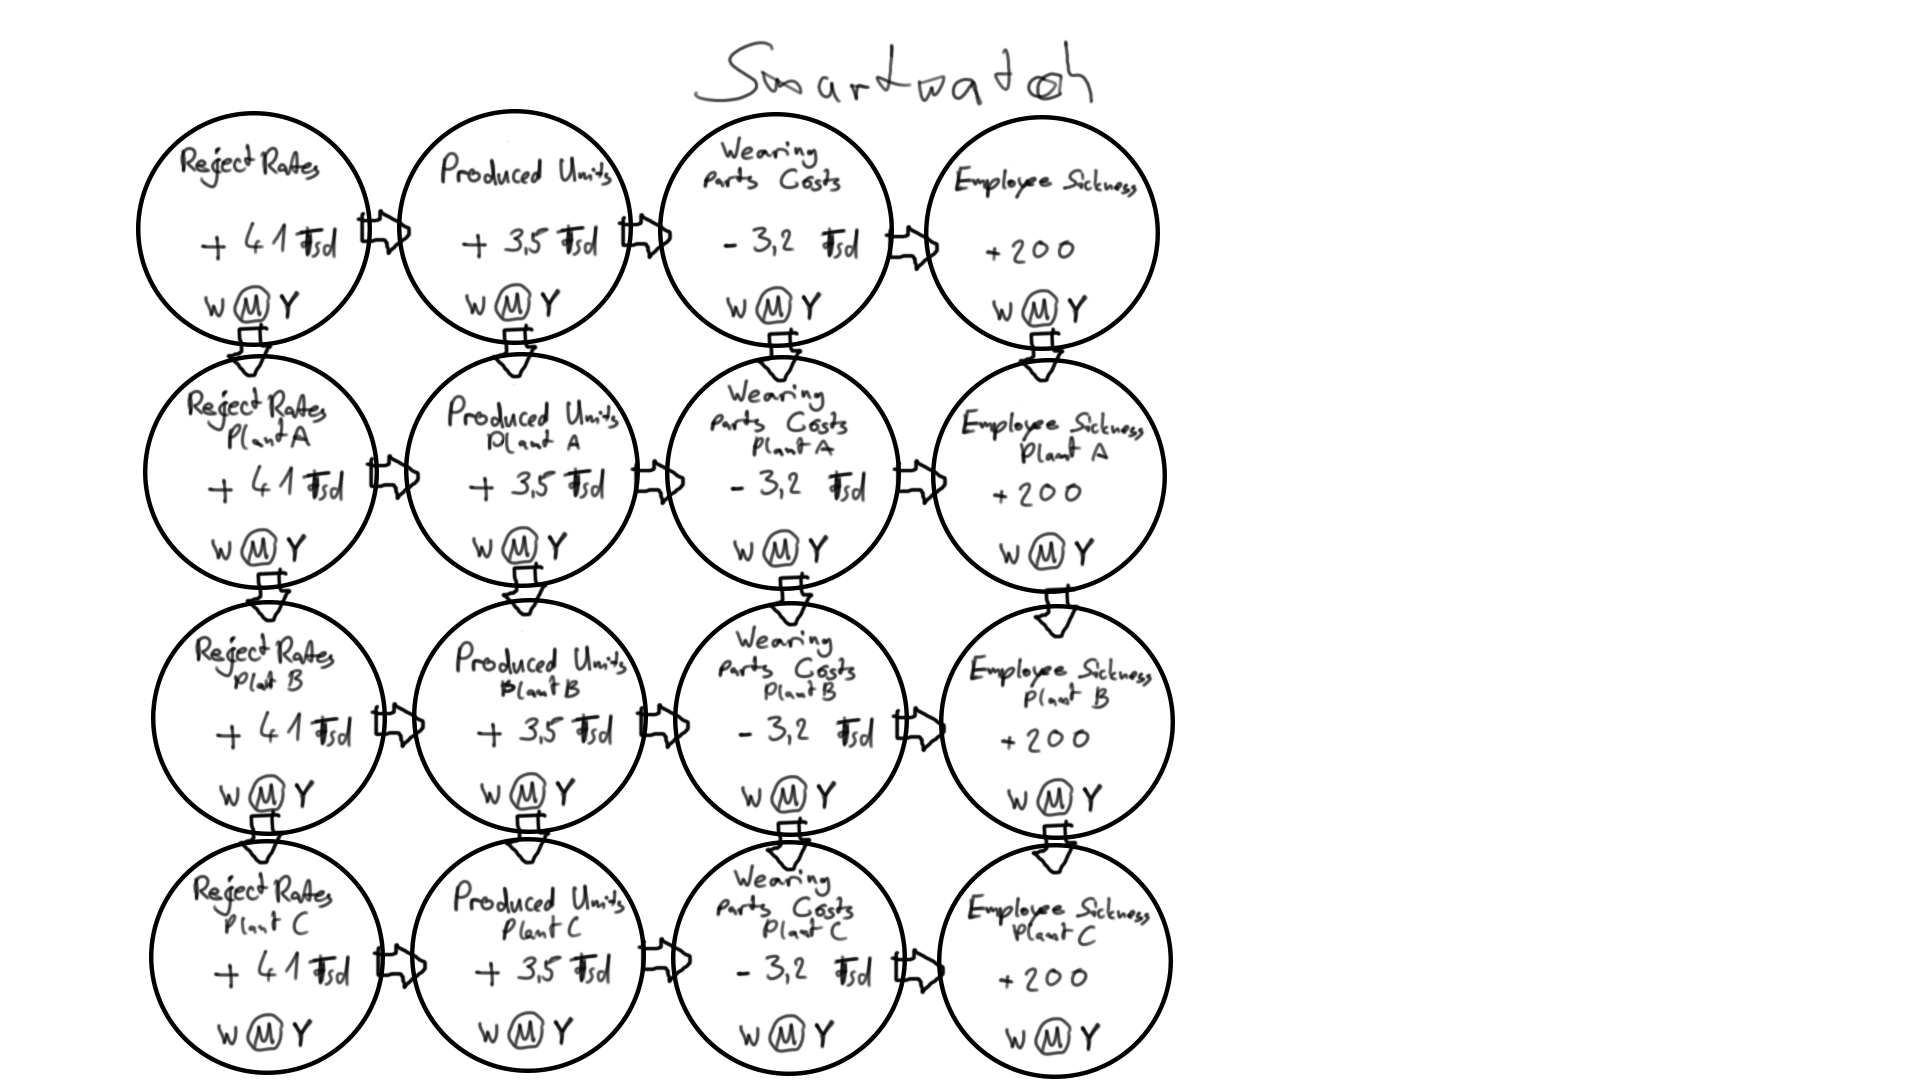 Smartwatch
Reject Rates
+ 41 Tsd
W M Y
Produced Units
+ 3,5 Tsd
W M Y
Wearing
Parts Costs
- 3,2 Tsd
W M Y
Employee Sickness
+ 200
W M Y
Reject Rates
Plant A
+ 41 Tsd
W M Y
Produced Units
Plant A
+ 3,5 Tsd
W M Y
Wearing
Parts Costs
Plant A
- 3,2 Tsd
W M Y
Employee Sickness
Plant A
+ 200
W M Y
Reject Rates
Plant B
+ 41 Tsd
W M Y
Produced Units
Plant B
+ 3,5 Tsd
W M Y
Wearing
Parts Costs
Plant B
- 3,2 Tsd
W M Y
Employee Sickness
Plant B
+ 200
W M Y
Reject Rates
Plant C
+ 41 Tsd
W M Y
Produced Units
Plant C
+ 3,5 Tsd
W M Y
Wearing
Parts Costs
Plant C
- 3,2 Tsd
W M Y
Employee Sickness
Plant C
+ 200
W M Y